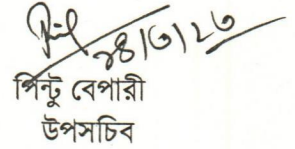 ২৪/৩/২৩
পিন্টু বেপারী
উপসচিব